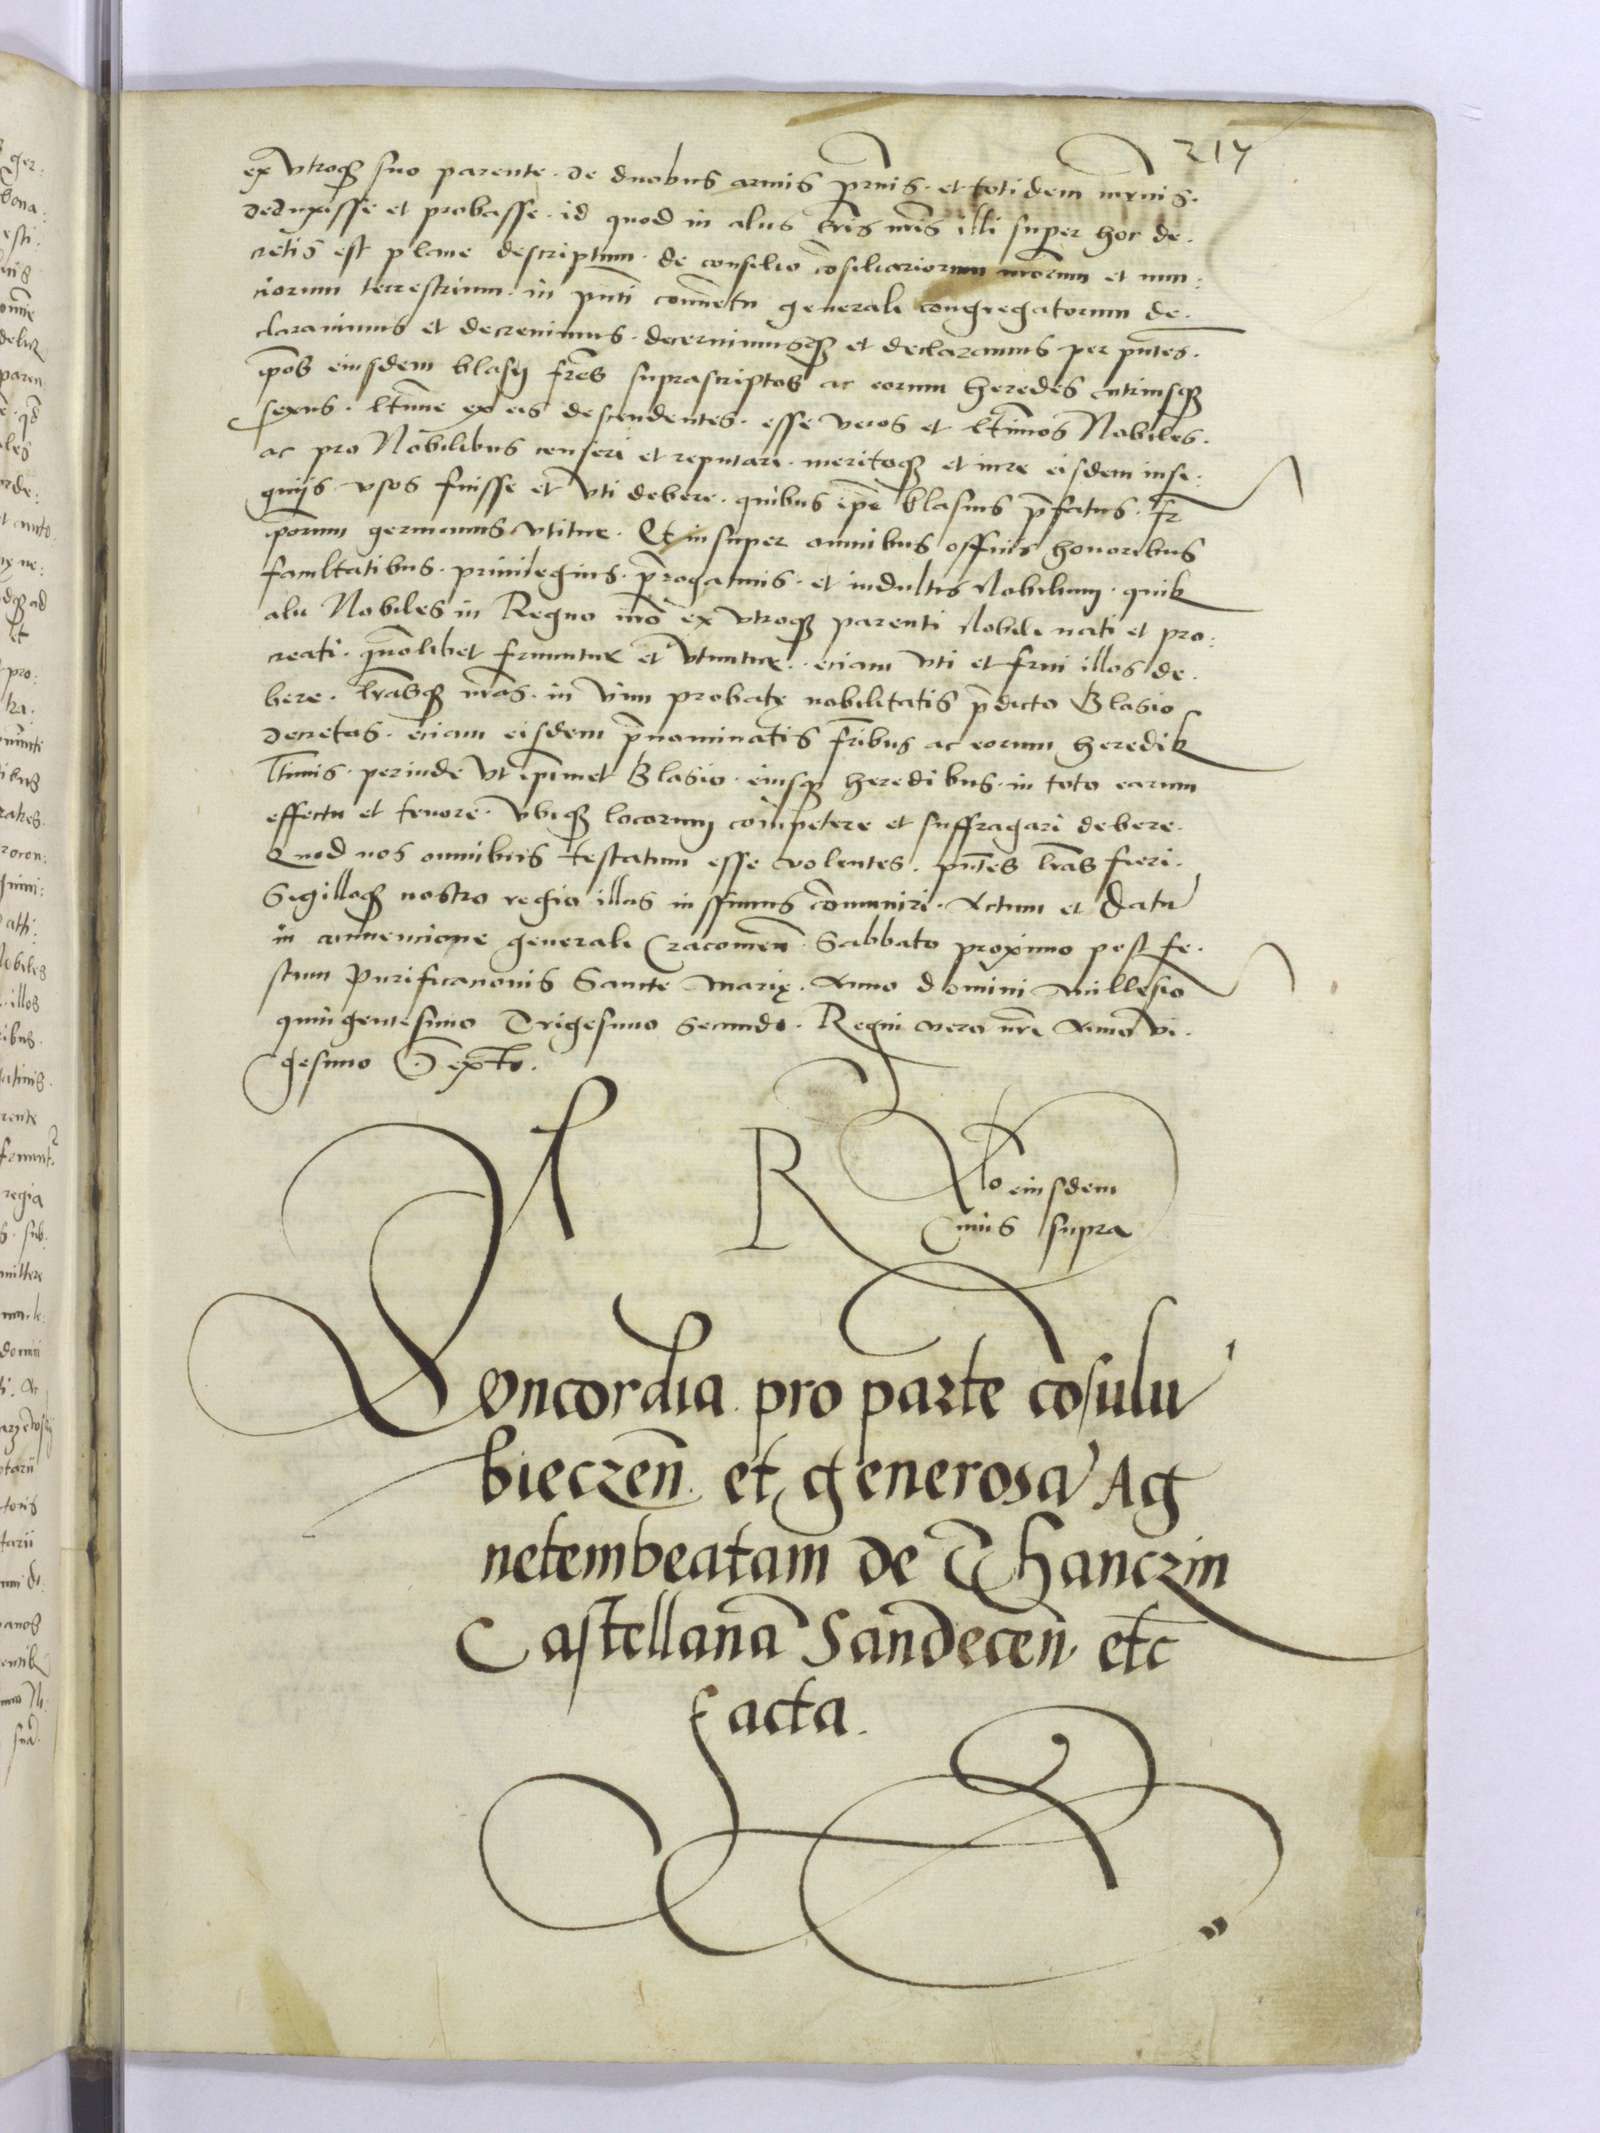 217
ex vtroq3 suo parente. de duobus armis pr̄nis. et totidem mr̄nis.
deduxisse et probasse. id quod in alijs lr̄is nr̄is illi super hoc de.
cretis est plane descriptum. de consilio cōsiliariorum nr̄orum et nun:
ciorum terrestrium. in pnti conuētu generali congregatorum de.
clarauimus et decreuimus. decernimusq3 et declaramus per pn̄tes.
ip̄os eiusdem blasij fr̄es suprascriptos ac eorum heredes vtriusq3
sexus. ltīme ex eis descendentes. esse veros et ltīmos Nobiles.
ac pro Nobilibus censeri et reputari. meritoq3 et iure eisdem insi:
gnijs vsos fuisse et vti debere. quibus ip̄e blasius p̄fatus. fr̄
ip̄orum germanus vtitur. Et insuper omnibus offitijs honoribus
facultatibus. priuilegijs. p̄rogatiuis. et indultis Nobilium. quib
alij Nobiles in Regno nr̄o ex vtroq3 parenti Nobili nati et pro:
creati. quōlibet fruuntur et vtuntur. eciam vti et frui illos de.
bere. lr̄asq3 nr̄as. in vim probatę nobilitatis p̄dicto Blasio
decretas. eciam eisdem p̄nominatis fr̄ibus ac eorum heredib
ltīmis. perinde vt ip̄imet Blasio. eiusq3 heredibus. in toto earum
effectu et tenore. vbiq3 locorum competere et suffragari debere.
Quod nos omnibus testatum esse volentes. pn̄tes lr̄as fieri.
Sigilloq3 nostro regio illas iussimus cōmuniri. Actum et datū
in conuencione generali Cracouien̄. Sabbato proximo post fe.
stum Purificationis Sancte Marię. Anno domini Millesio
quingentesimo Trigesimo Secundo. Regni vero nr̄i Anno vi.
gesimo Sexto.
R
Rlo eiusdem
cuius supra
Concordia pro parte cōsulū
bieczen̄. et generosā Ag
netembeatam de Thanczin
Castellanā Sandecen̄. etc
facta.